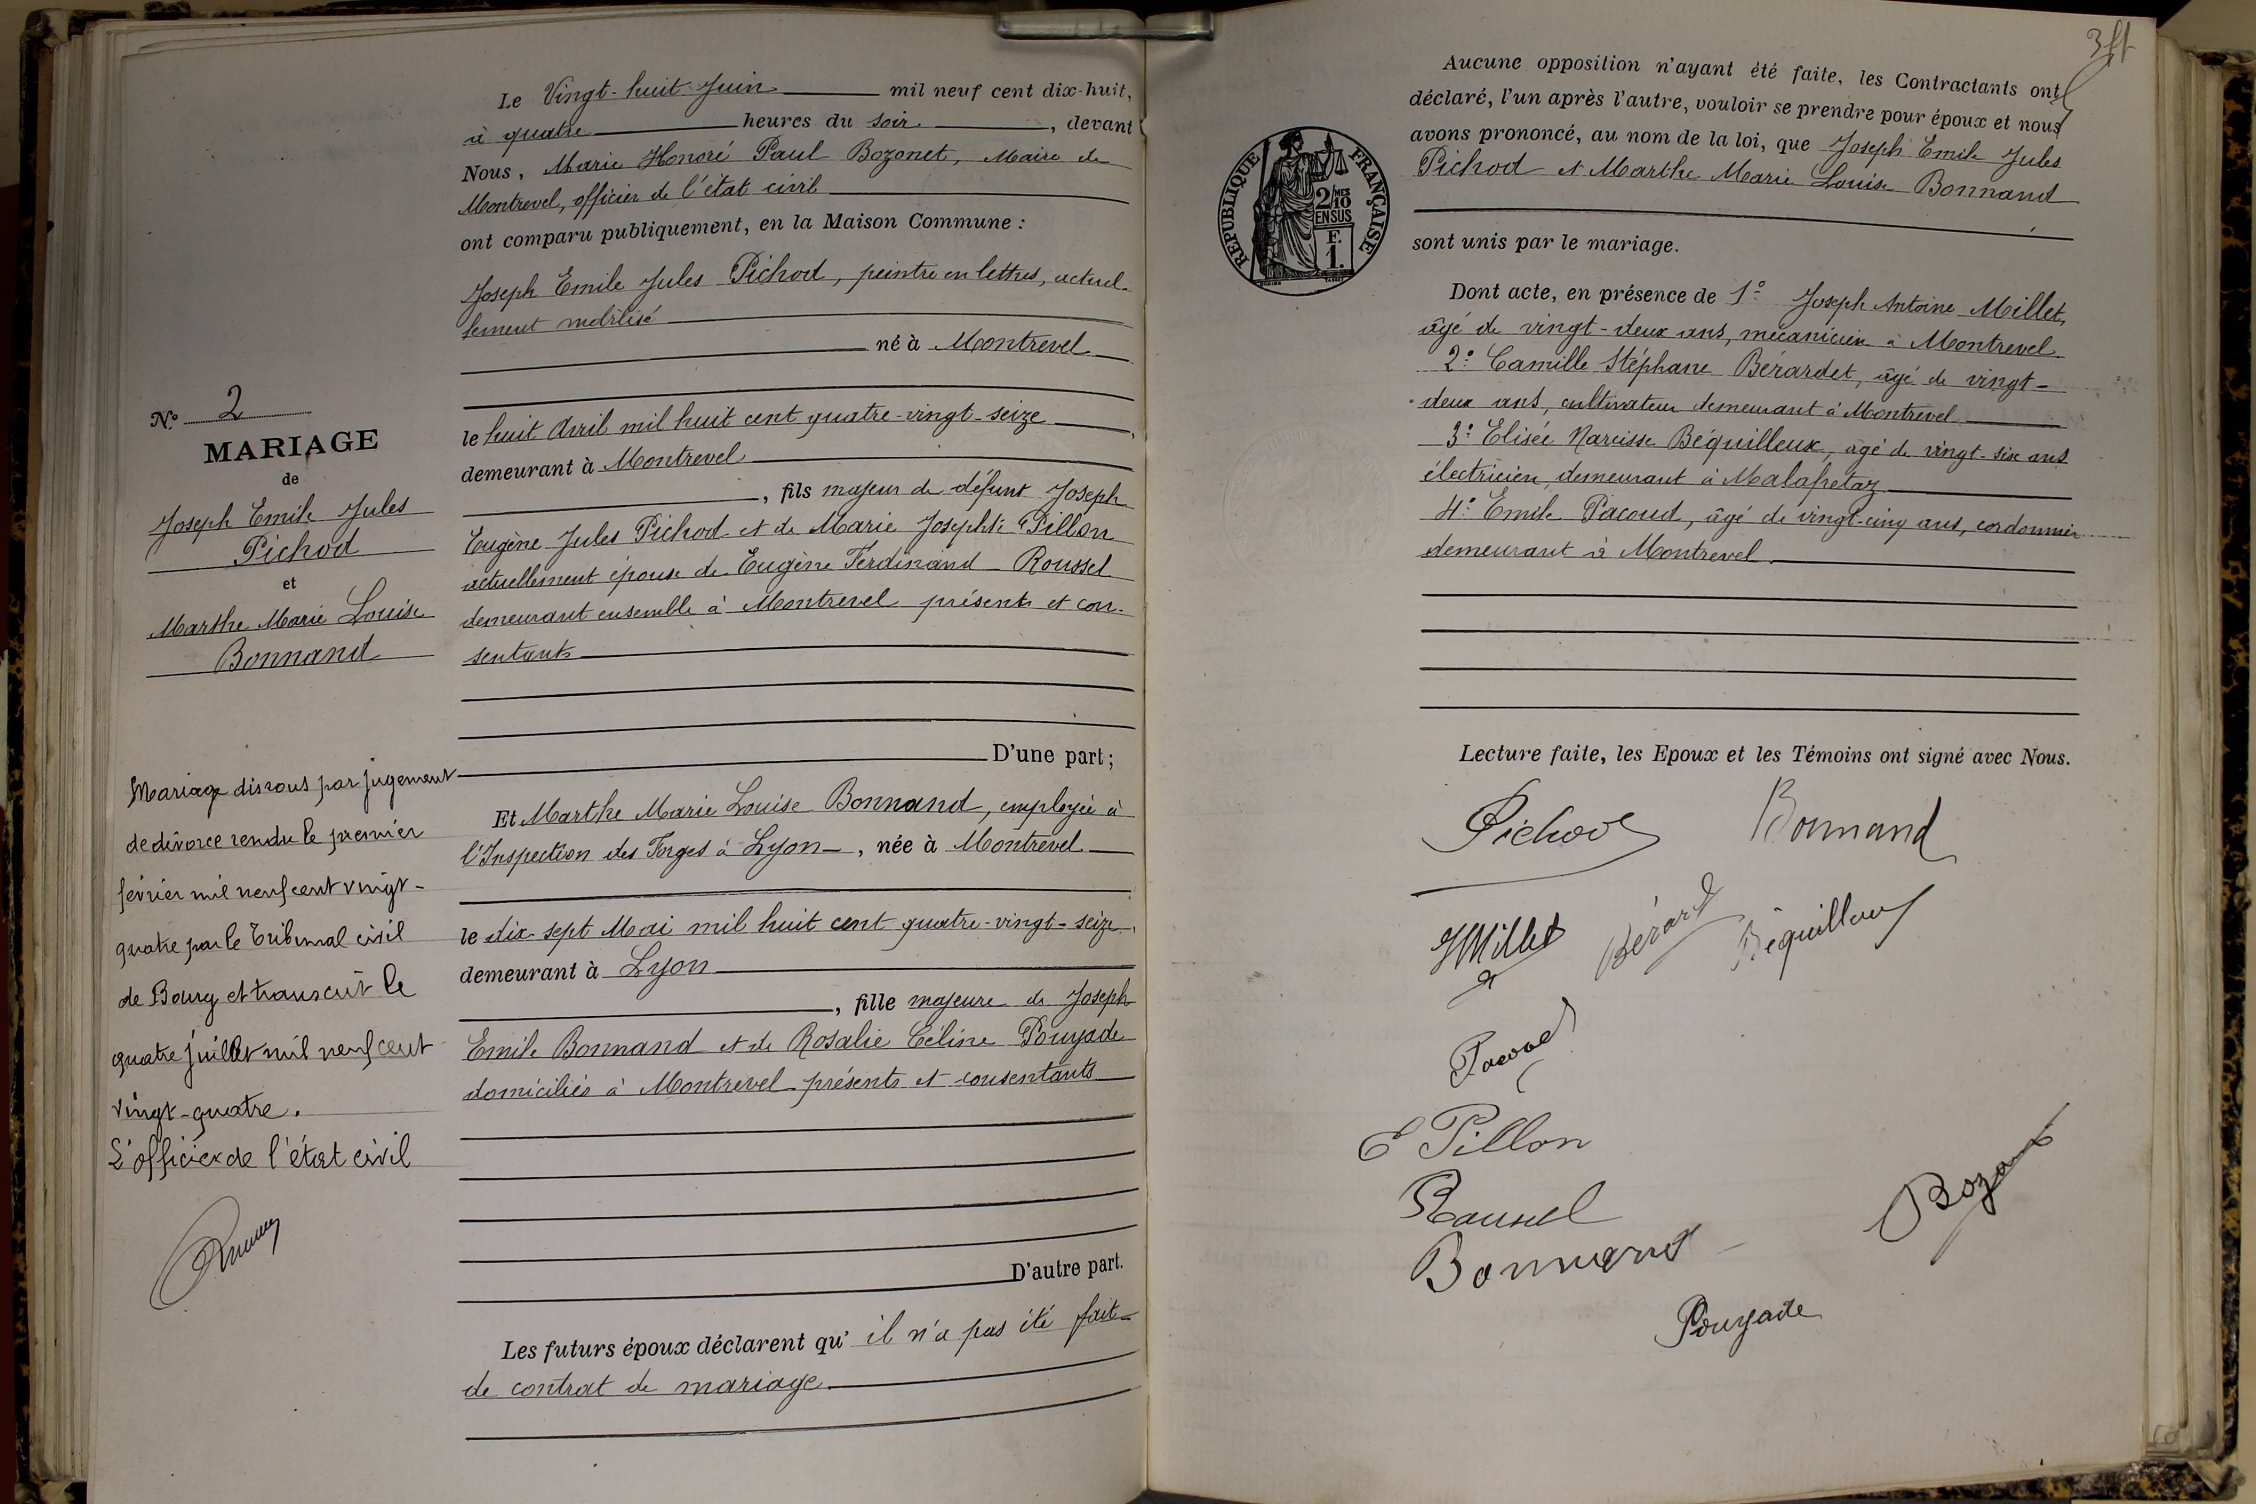 Le Vingt-huit Juin mil neuf cent dix-huit,
à quatre heures du soir, devant
Nous, Marie Honoré Paul Bozonet, Maire de
Montrevel, officier de l'état civil
ont comparu publiquement, en la Maison Commune :
Joseph Emile Jules Pichod, peintre en lettres, actuel-
lement mobilisé
né à Montrevel
le huit Avril mil huit cent quatre-vingt-seize,
demeurant à Montrevel
, fils majeur de défunt Joseph
Eugène Jules Pichod et de Marie Josephte Pillon
actuellement épouse de Eugène Ferdinand Roussel
demeurant ensemble à Montrevel présents et con-
sentants
D'une part ;
Et Marthe Marie Louise Bonnand, employée à
l'Inspection des Forges à Lyon, née à Montrevel
le dix-sept Mai mil huit cent quatre-vingt-seize,
demeurant à Lyon
, fille majeure de Joseph
Emile Bonnand et de Rosalie Céline Pouyade
domiciliés à Montrevel présents et consentants
D'autre part.
Les futurs époux déclarent qu' il n'a pas été fait
de contrat de mariage
N° 2
MARIAGE
de
Joseph Emile Jules
Pichod
et
Marthe Marie Louise
Bonnand
Mariage dissous par jugement
de divorce rendu le premier
février mil neuf cent vingt-
quatre par le Tribunal civil
de Bourg et transcrit le
quatre juillet mil neuf cent
vingt-quatre.
L'officier de l'état civil
Aucune opposition n'ayant été faite, les Contractants ont
déclaré, l'un après l'autre, vouloir se prendre pour époux et nous
avons prononcé, au nom de la loi, que Joseph Emile Jules
Pichod et Marthe Marie Louise Bonnand
sont unis par le mariage.
RÉPUBLIQUE FRANÇAISE
2/10 MES
EN SUS
F.
1.
Dont acte, en présence de 1° Joseph Antoine Millet,
âgé de vingt-deux ans, mécanicien à Montrevel
2° Camille Stéphane Bérardet, âgé de vingt-
deux ans, cultivateur demeurant à Montrevel
3° Elisée Narcisse Béquilleux, âgé de vingt-six ans
électricien, demeurant à Malafretaz
4° Emile Pacoud, âgé de vingt-cinq ans, cordonnier
demeurant à Montrevel
Lecture faite, les Epoux et les Témoins ont signé avec Nous.
Pichod Bonnand
J Millet Bérard Béquilleux
Pacoud
E Pillon
Roussel
Bozonet
Bonnand
Pouyade